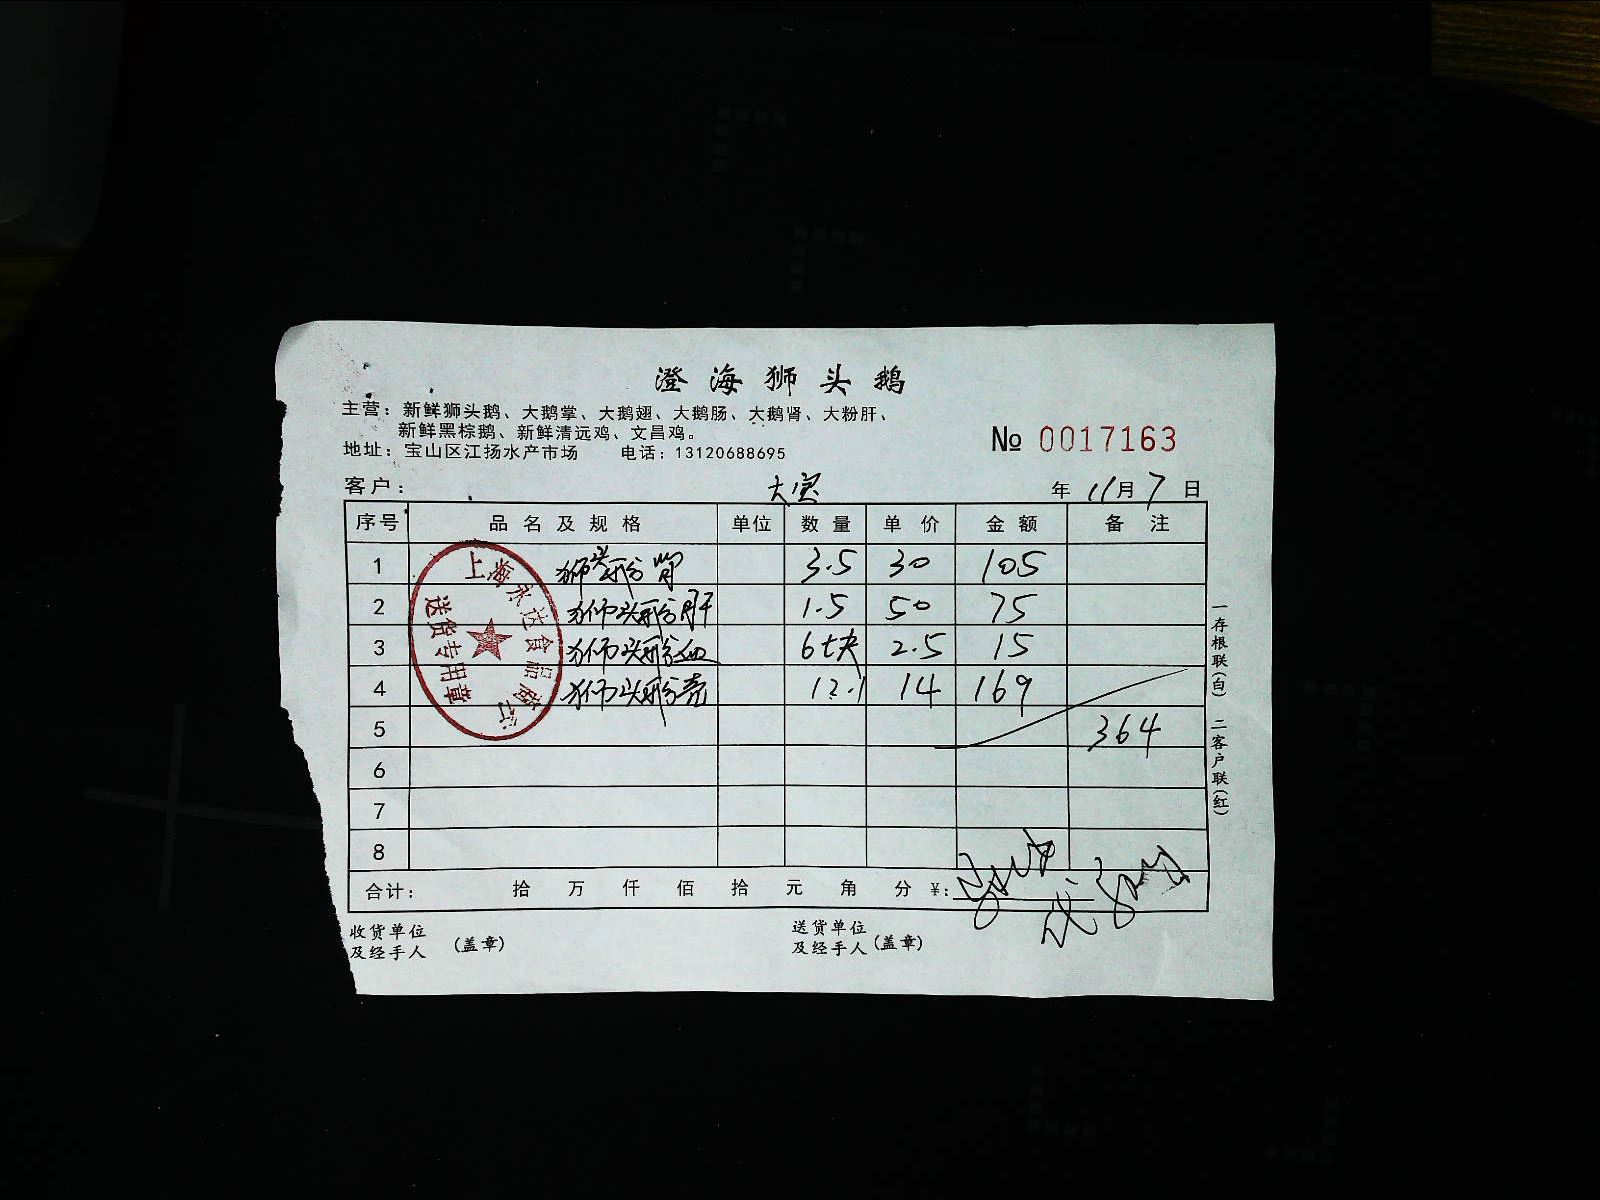 澄海狮头鹅
主营：新鲜狮头鹅、大鹅掌、大鹅翅、大鹅肠、大鹅肾、大粉肝、
新鲜黑棕鹅、新鲜清远鸡、文昌鸡。
地址：宝山区江扬水产市场 电话：13120688695
№ 0017163
客户： 大宝 年 11月 7 日
序号 品名及规格 单位 数量 单价 金额 备注
1 狮头 3.5 30 105
2 狮头 肝 1.5 50 75
3 狮头 血 6块 2.5 15
4 狮头 壳 12.1 14 169
5 364
6
7
8
合计： 拾 万 仟 佰 拾 元 角 分 ¥:
收货单位
及经手人 （盖章）
送货单位
及经手人（盖章）
一存根联(白) 二客户联(红)
上海永达食品
送货专用章